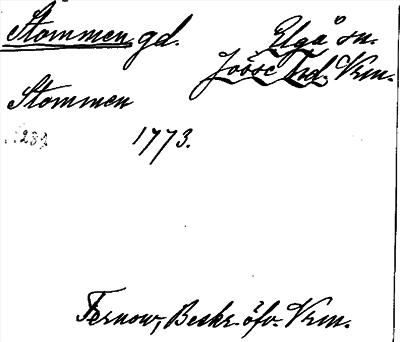 Stommen gd. Elgå sn.
Jösse hd. Vrm.
Stommen
1773.
Fernow, Beskr. öfv. Vrm.